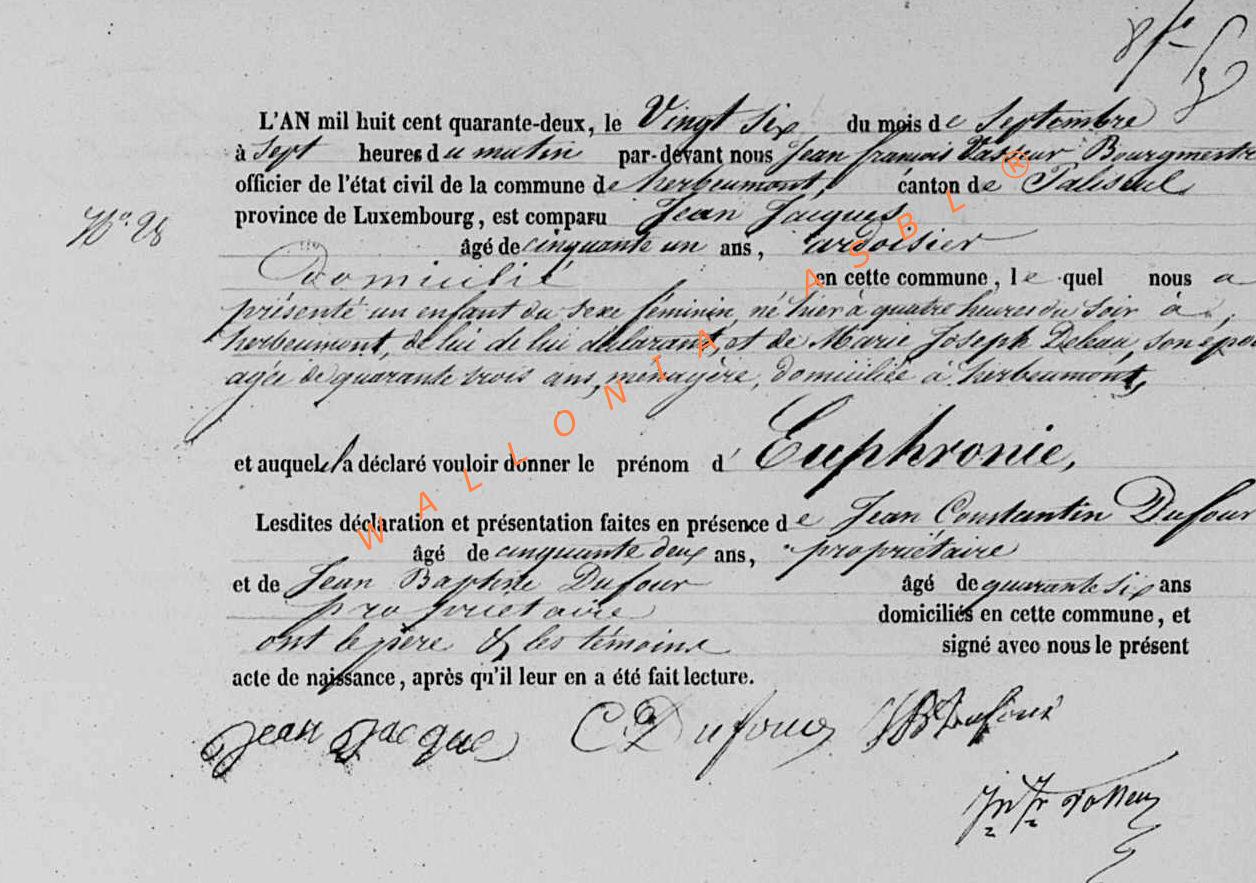 L'AN mil huit cent quarante-deux, le Vingt six du mois de Septembre
à Sept heures du matin par-devant nous Jean françois Vasseur Bourgmestre
officier de l'état civil de la commune de herbeumont, canton de Paliseul
N.º 28 province de Luxembourg, est comparu Jean Jacques
âgé de cinquante un ans, ardoisier
Domicilié en cette commune, le quel nous a
présenté un enfant du sexe féminin, né hier à quatre heures du Soir à
herbeumont, de lui de lui déclarant, et de Marie Joseph son
agée de quarante trois ans, ménagère, domiciliée à herbeumont,
et auquel l'a déclaré vouloir donner le prénom d' Euphronie,
Lesdites déclaration et présentation faites en présence de Jean Constantin Dufour
âgé de cinquante deux ans, propriétaire
et de Jean Baptiste Dufour âgé de quarante six ans
propriétaire domiciliés en cette commune, et
ont le père & les témoins signé avec nous le présent
acte de naissance, après qu'il leur en a été fait lecture.
Jean Jacque C Dufour JB Dufour
WALLONIA ASBL ®